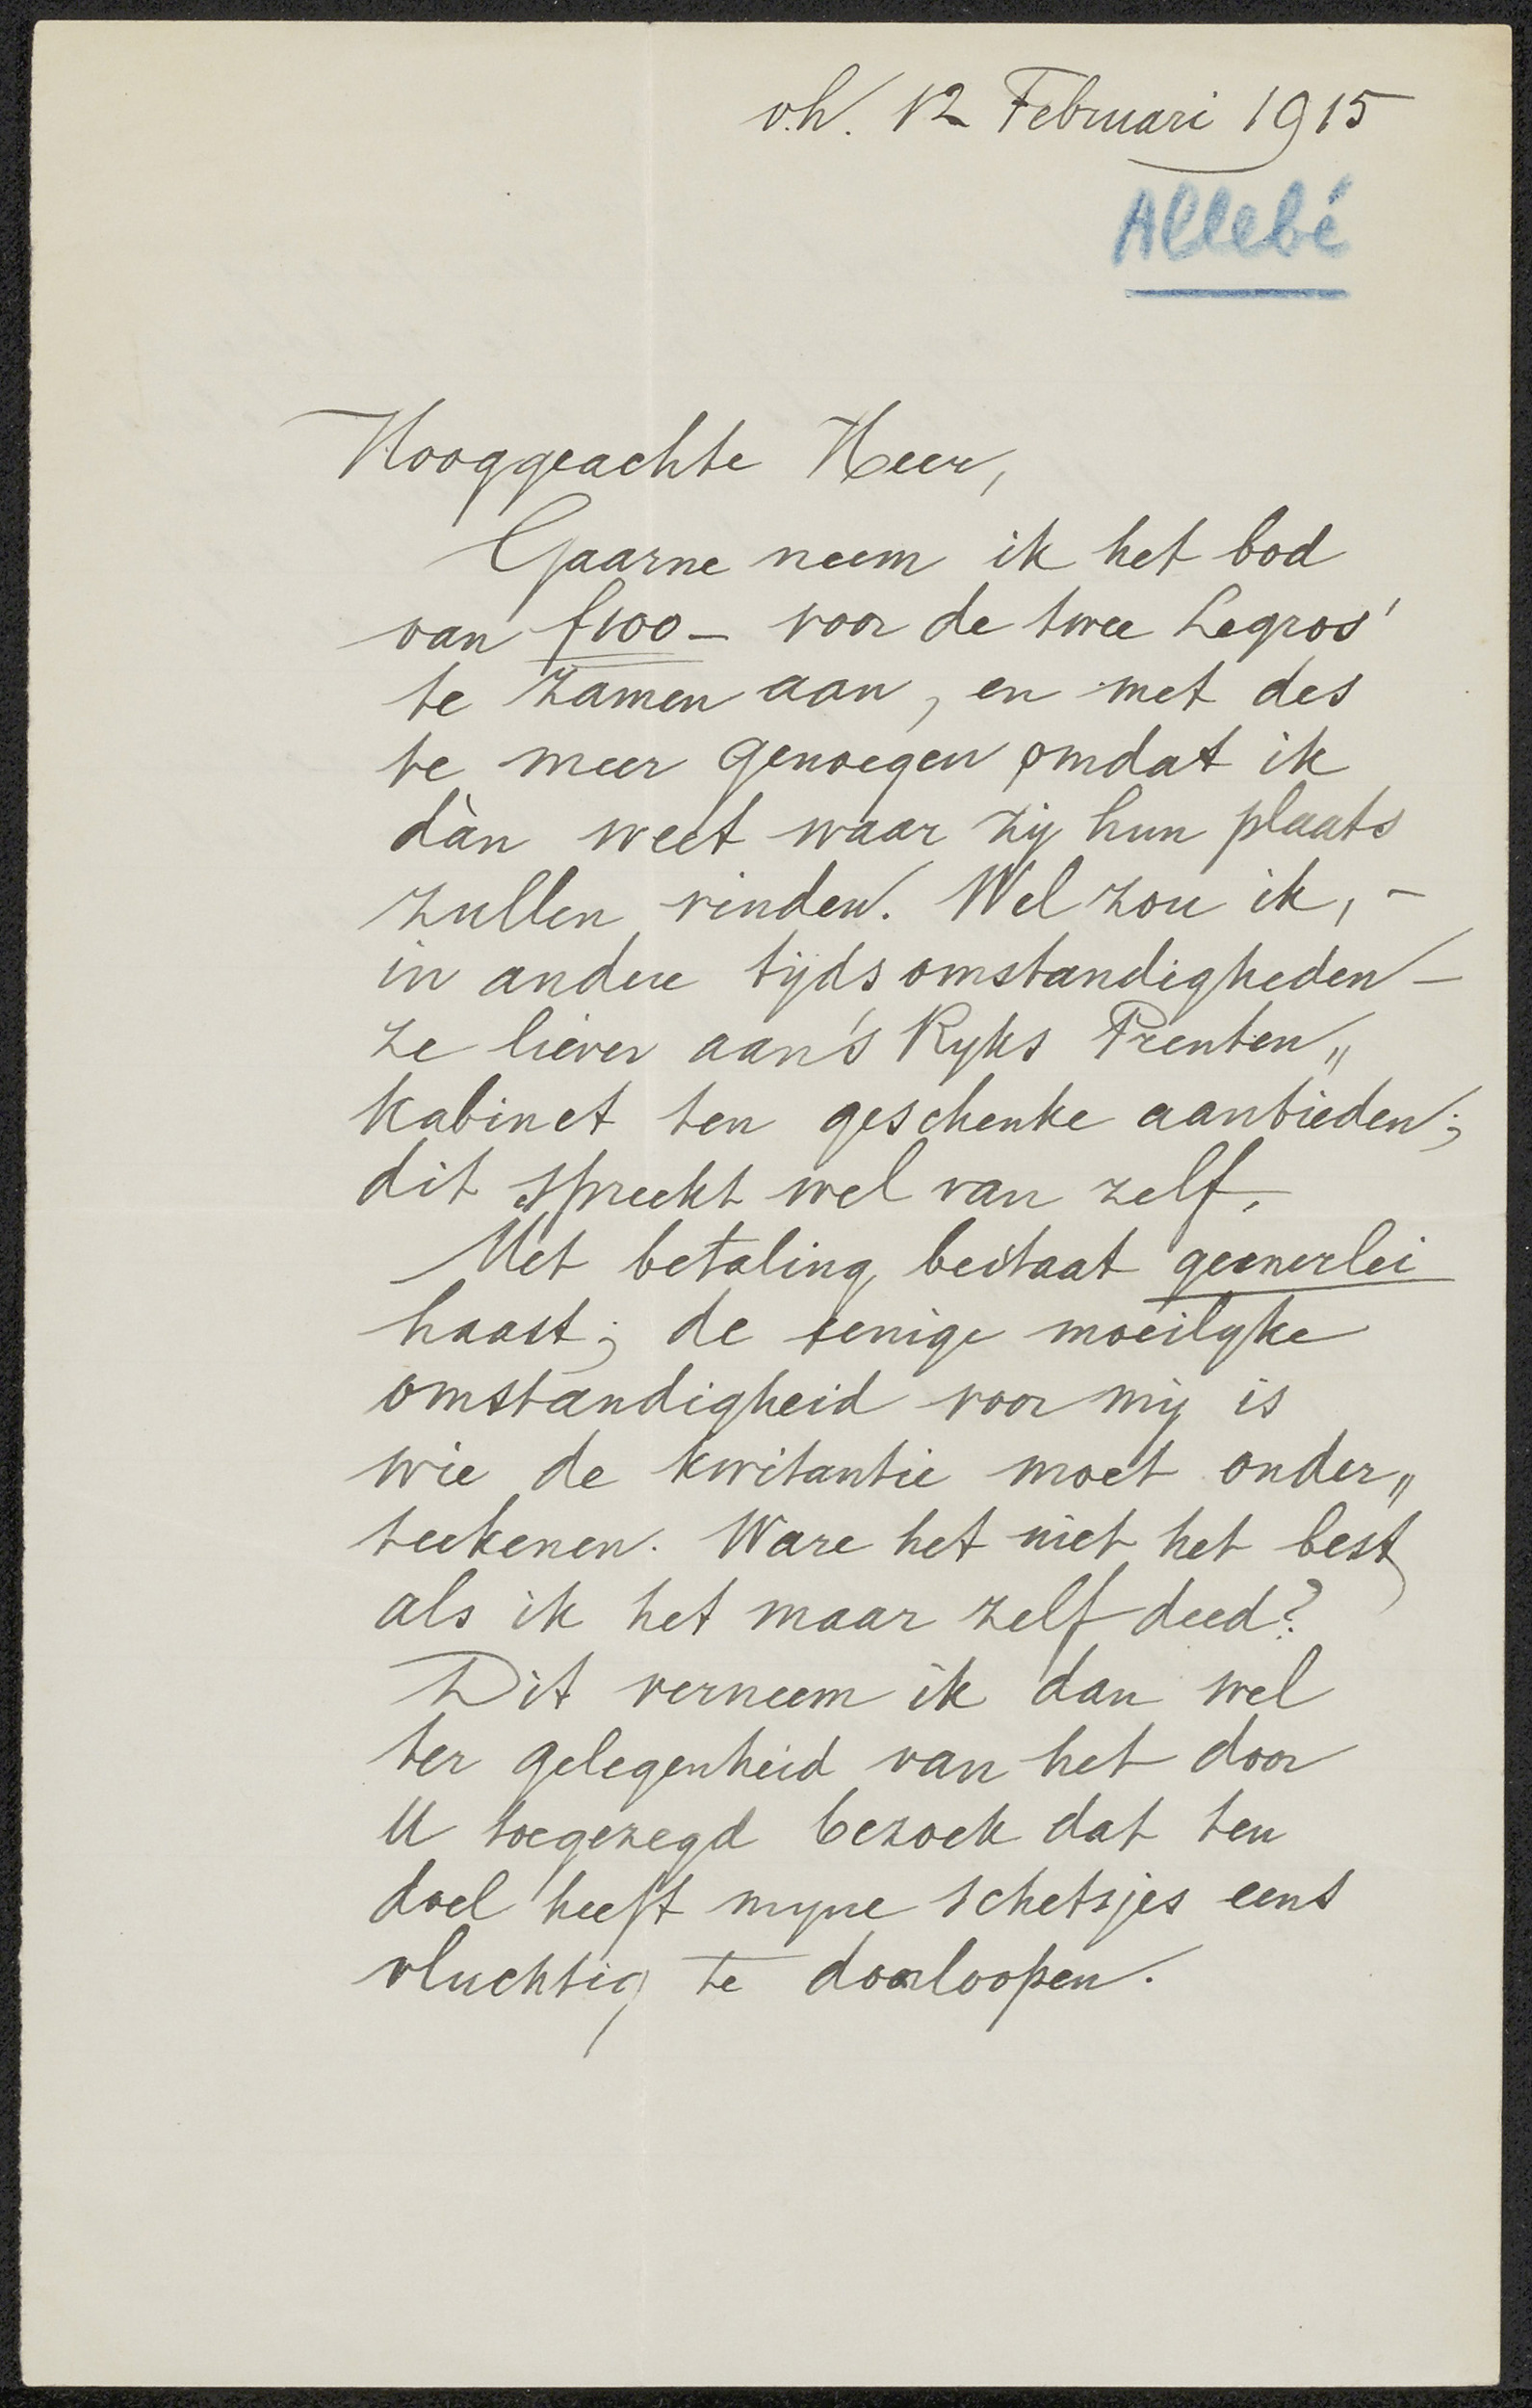 v.h. 12 Februari 1915
Allebé
Hooggeachte Heer,
Gaarne neem ik het bod
van f100 – voor de twee Legros'
te zamen aan, en met des
te meer genoegen omdat ik
dàn weet waar zij hun plaats
zullen vinden. Wel zou ik, –
in andere tijdsomstandigheden –
ze liever aan 's Ryks Prenten„
kabinet ten geschenke aanbieden;
dit spreekt wel van zelf.
Met betaling bestaat geenerlei
haast; de eenige moeilyke
omstandigheid voor mij is
wie de kwitantie moet onder„
teekenen. Ware het niet het best
als ik het maar zelf deed?
Dit verneem ik dan wel
ter gelegenheid van het door
U toegezegd bezoek dat ten
doel heeft myne schetsjes eens
vluchtig te doorloopen.